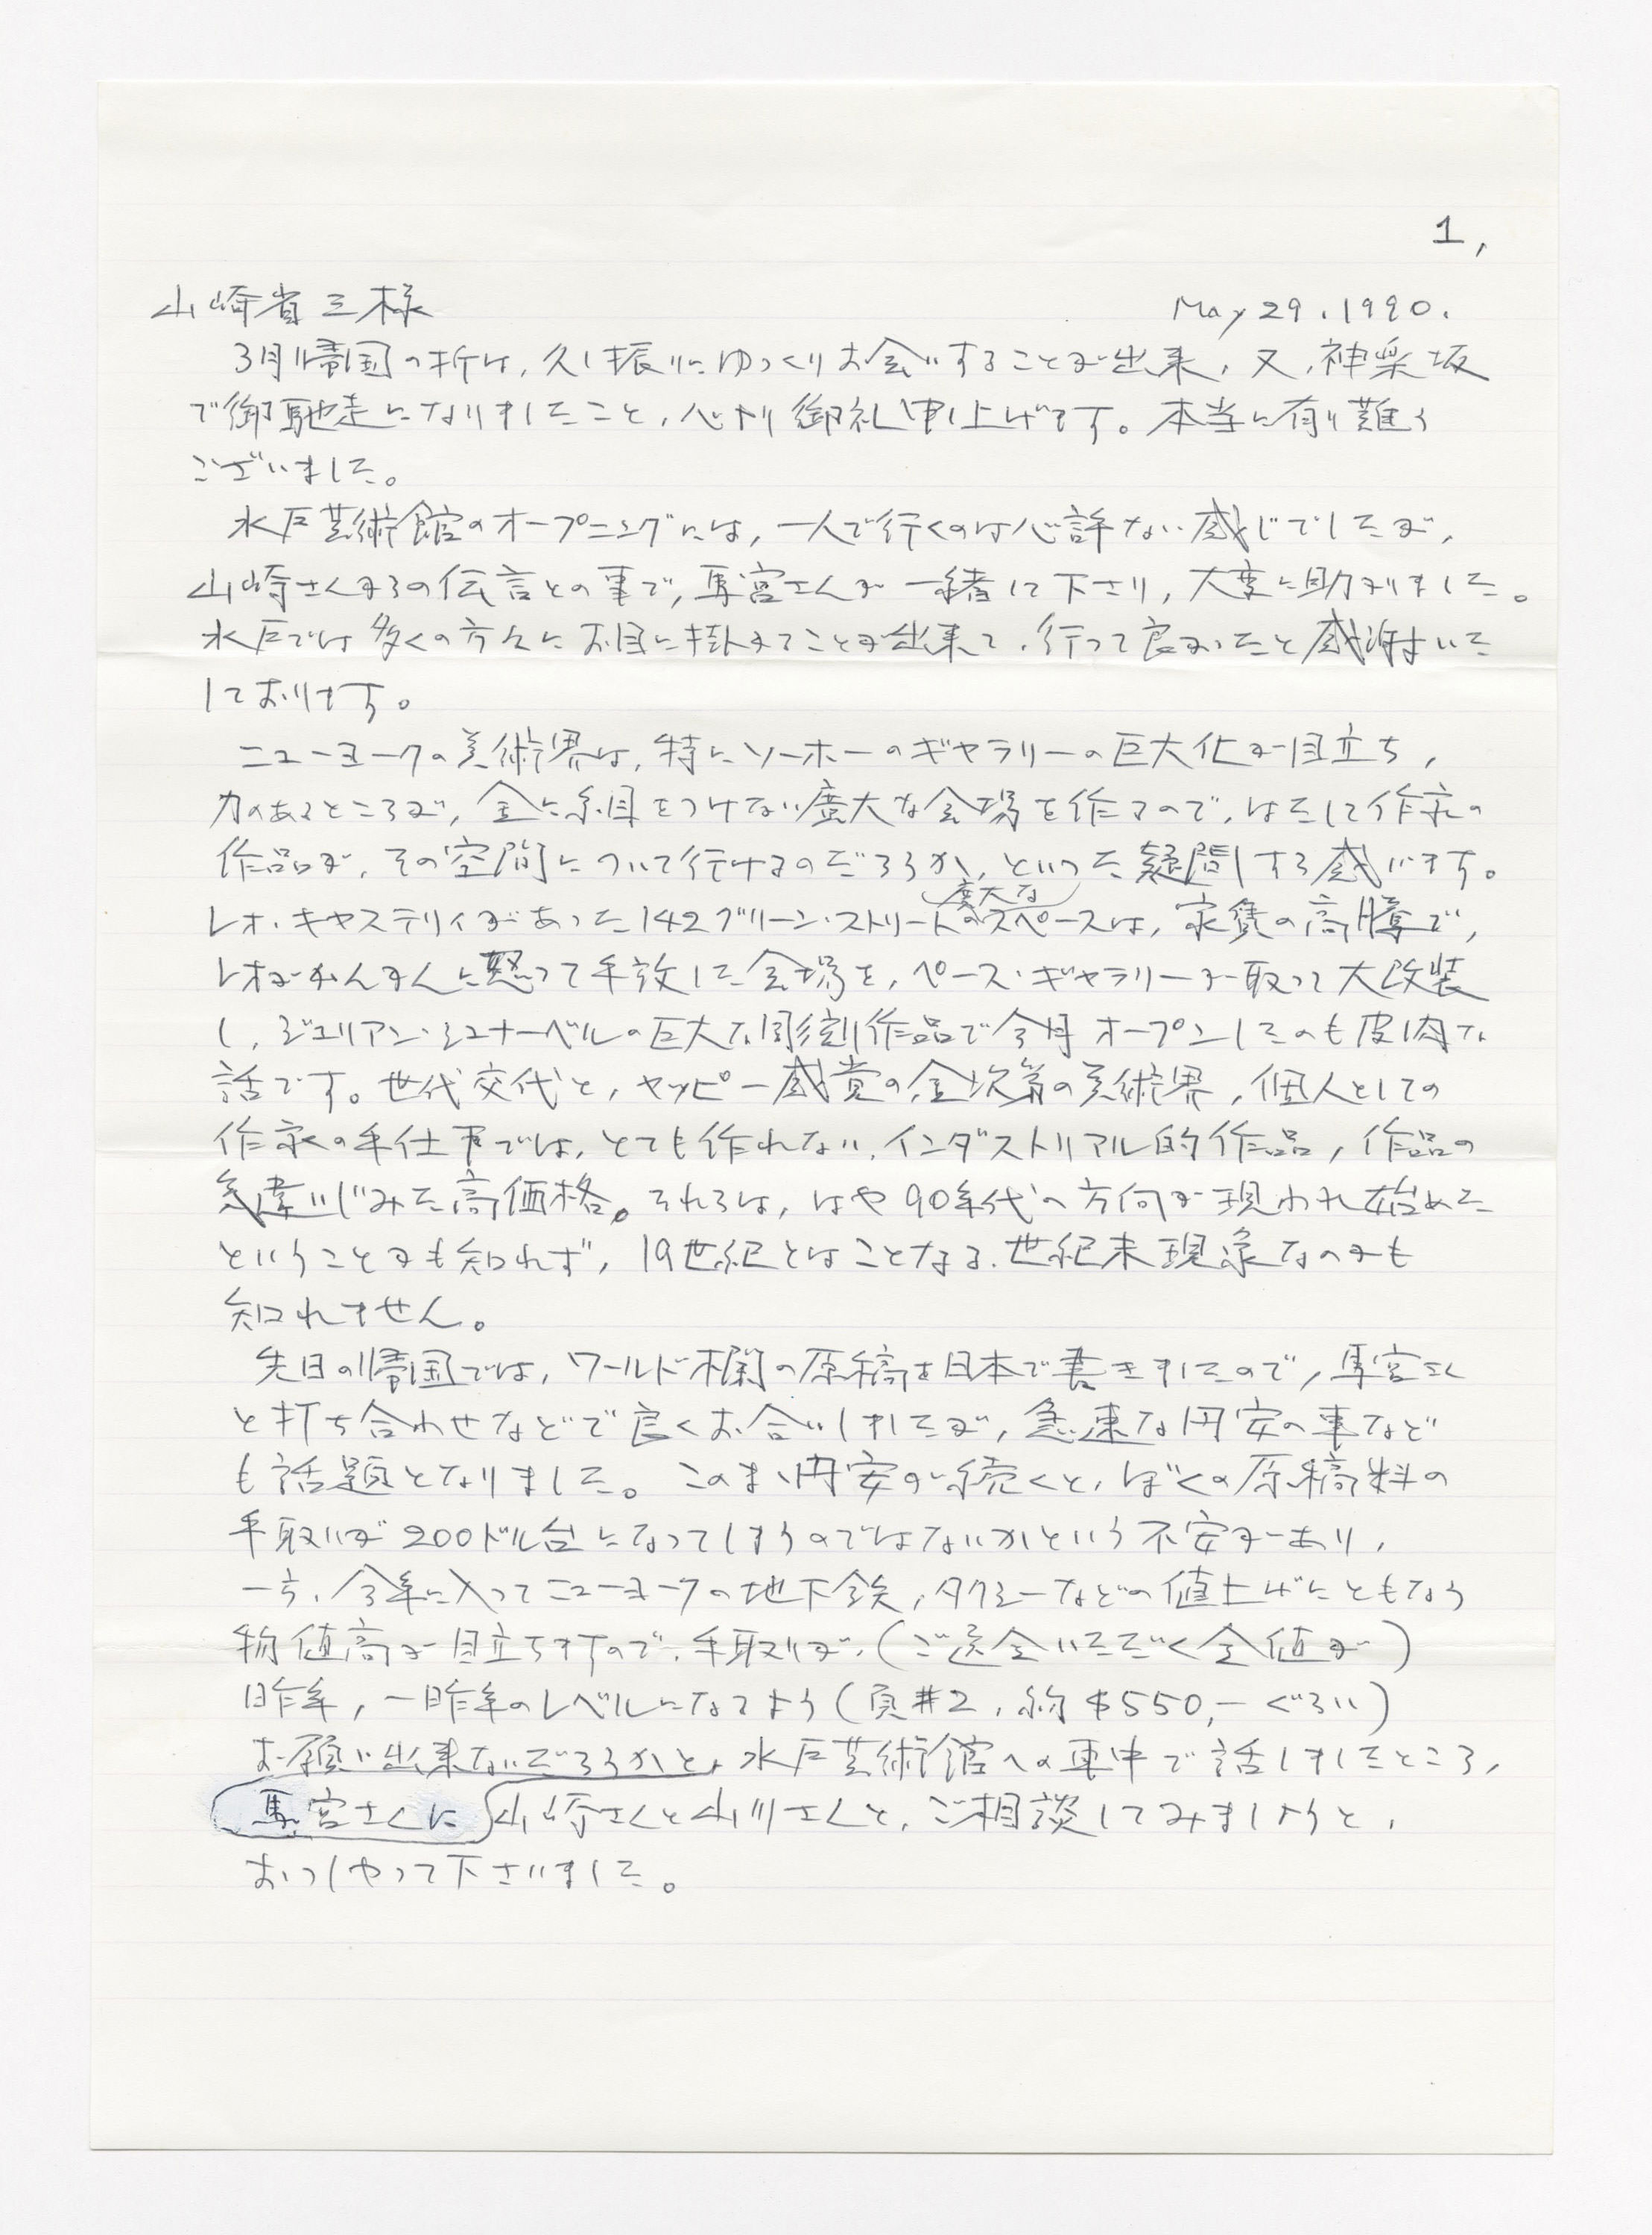 1,
山崎省三様 May 29. 1990.
3月帰国の折は、久し振りにゆっくりお会いすることが出来、又、神楽坂
で御馳走になりましたこと、心より御礼申し上げます。本当に有り難う
ございました。
水戸芸術館のオープニングには、一人で行くのは心許ない感じでしたが、
山崎さんからの伝言との事で、馬宮さんが一緒して下さり、大変に助かりました。
水戸では多くの方々にお目に掛かることが出来て、行って良かったと感謝いた
しております。
ニューヨークの美術界は、特にソーホーのギャラリーの巨大化が目立ち、
力のあるところが、金に糸目をつけない廣大な会場を作るので、はたして作家の
作品が、その空間について行けるのだろうか、といった疑問すら感じます。
レオ・キャステリィがあった142グリーン・ストリートの廣大なスペースは、家賃の高騰で、
レオがかんかんに怒って手放した会場を、ペース・ギャラリーが取って大改装
し、ジュリアン・シュナーベルの巨大な彫刻作品で今月オープンしたのも皮肉な
話です。世代交代と、ヤッピー感覚の金次第の美術界、個人としての
作家の手仕事では、とても作れない、インダストリアル的作品、作品の
気違いじみた高価格。それらは、はや90年代への方向が現われ始めた
ということかも知れず、19世紀とはことなる、世紀末現象なのかも
知れません。
先日の帰国では、ワールド欄の原稿を日本で書きましたので、馬宮さん
と打ち合わせなどで良くお会いしましたが、急速な円安の事など
も話題となりました。このまゝ円安が続くと、ぼくの原稿料の
手取りが200ドル台になってしまうのではないかという不安があり、
一方、今年に入ってニューヨークの地下鉄、タクシーなどの値上げにともなう
物値高が目立ちますので、手取りが、(ご送金いただく金値が)
昨年、一昨年のレベルになるよう(頁#2、約$550,-ぐらい)
お願い出来ないだろうかと、水戸芸術館への車中で話しましたところ、
馬宮さんに山崎さんと山川さんと、ご相談してみましょうと、
おっしゃって下さいました。